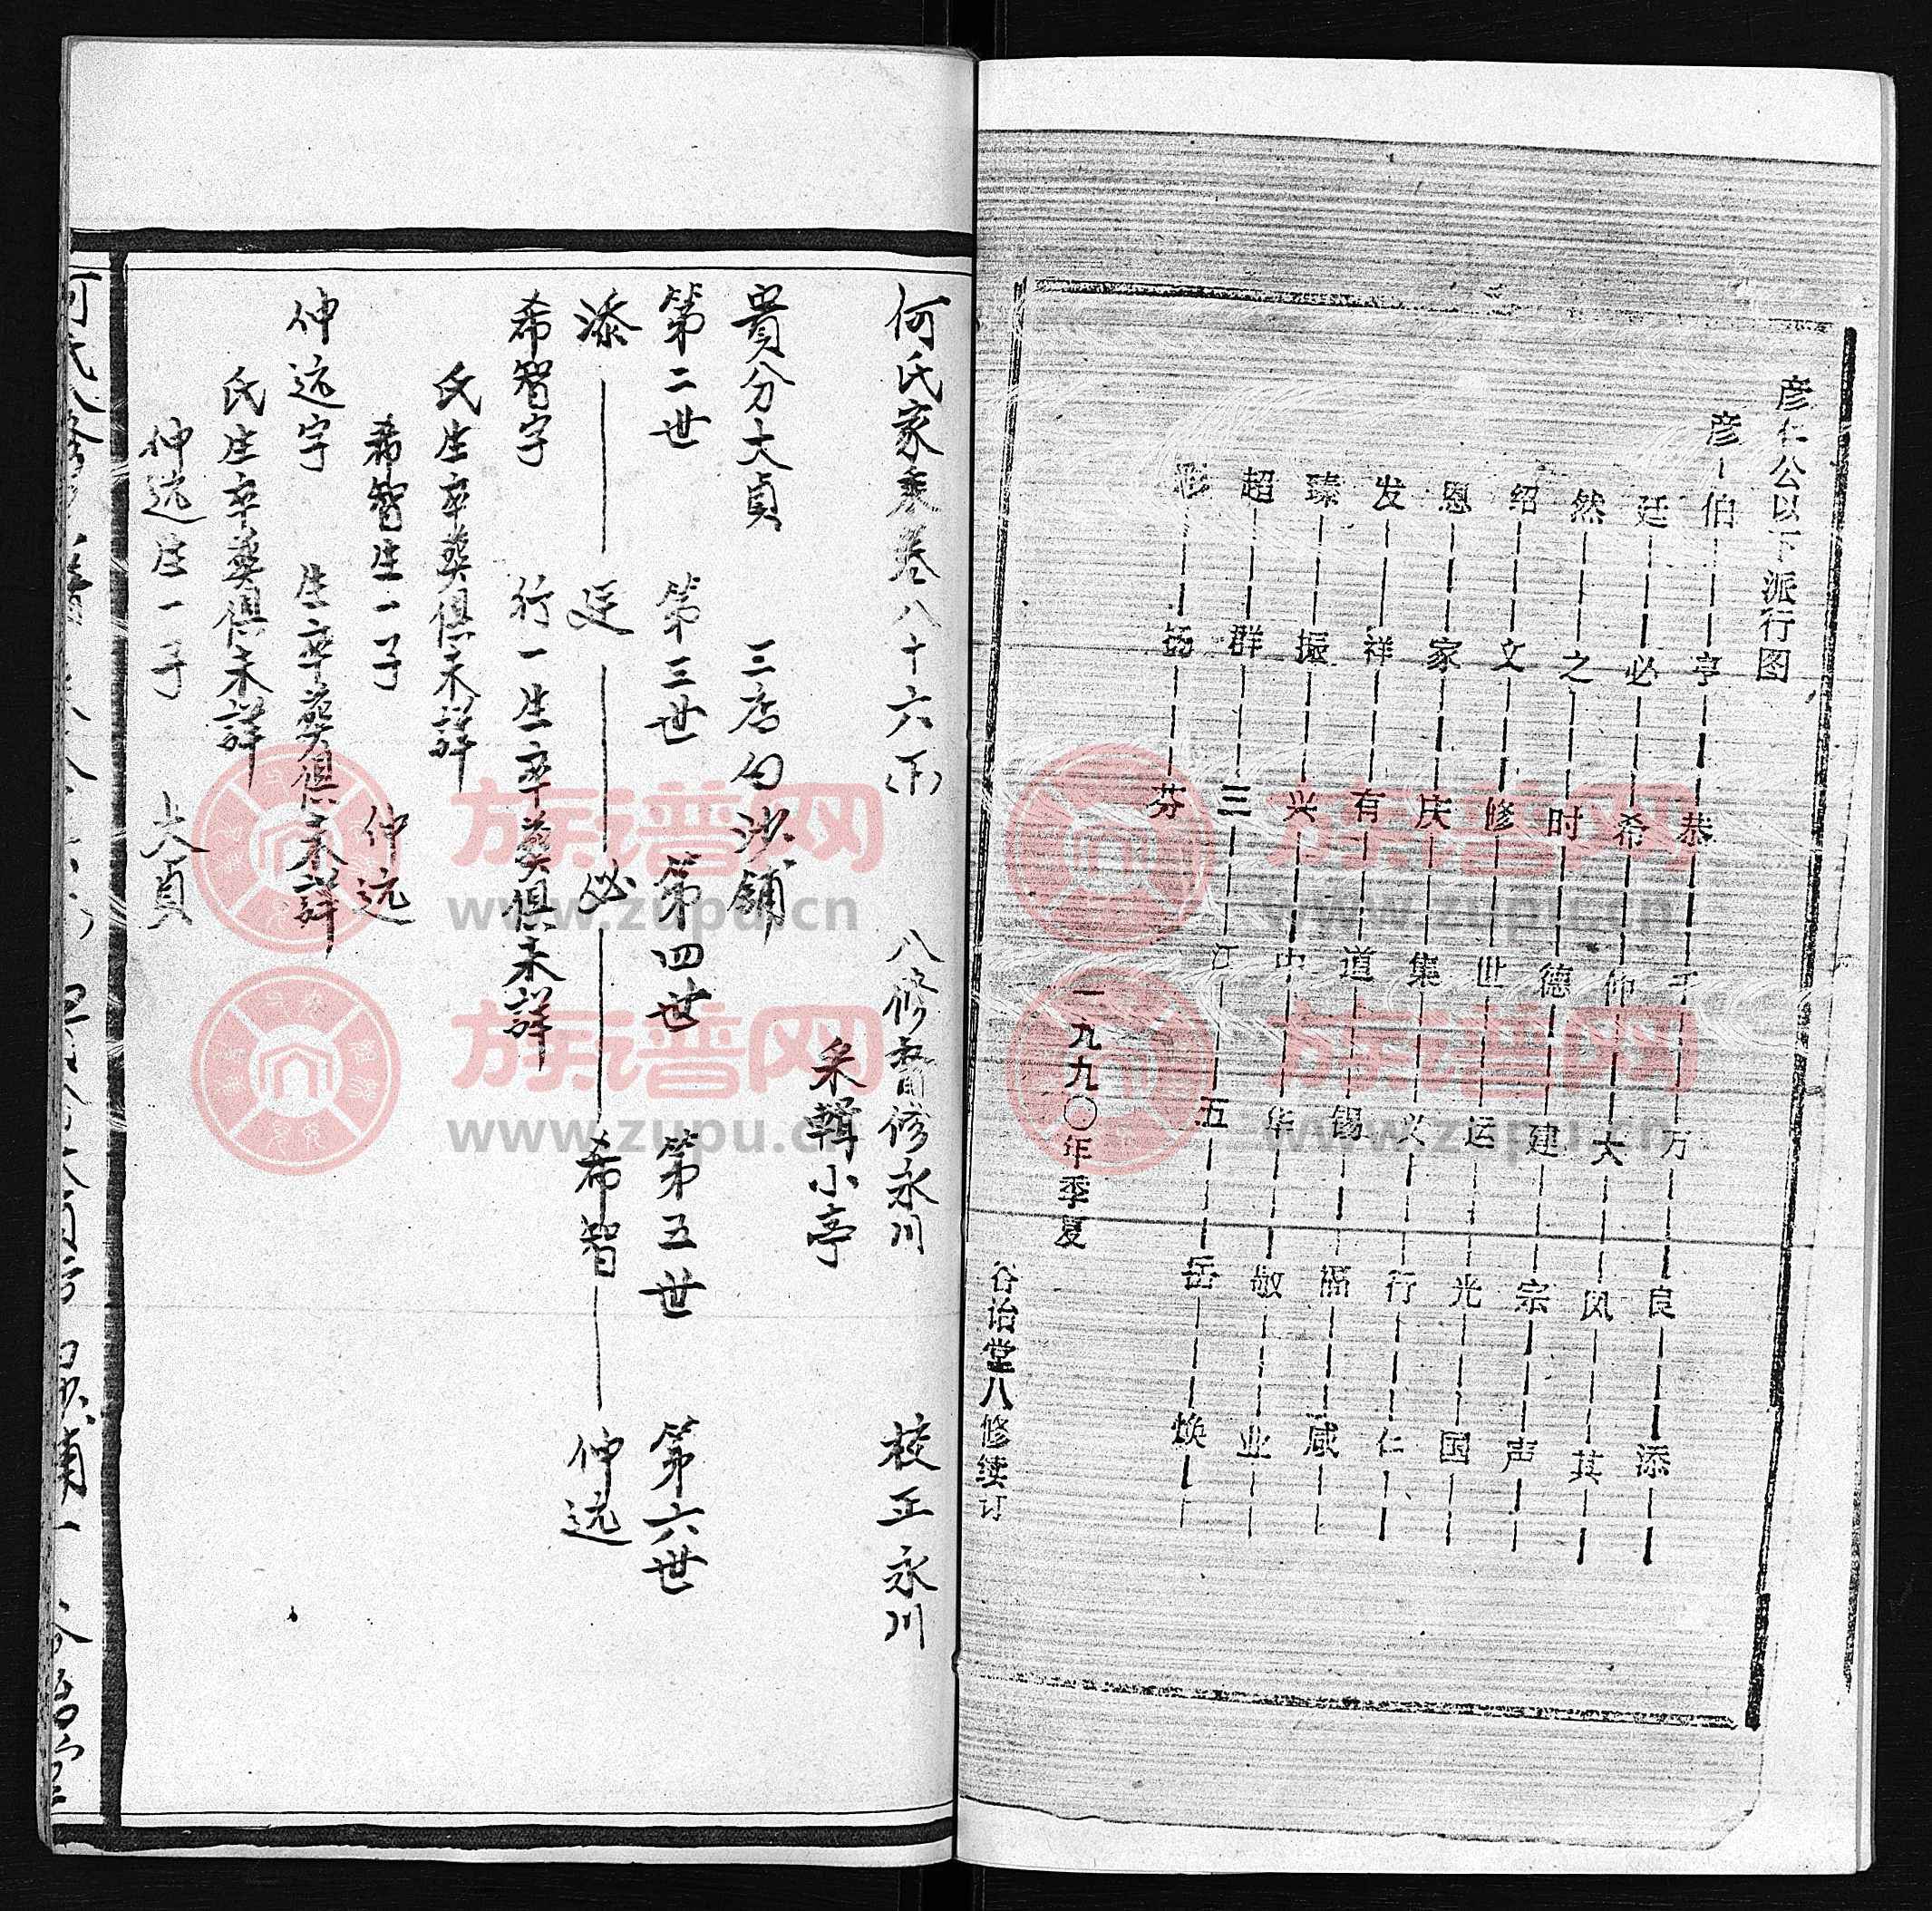 彦仁公以下派行图
彦 伯 亨 恭 千 万 良 添
廷 必 希 仲 大 风 其
然 之 时 德 建 宗 声
绍 文 修 世 运 光 国
恩 家 庆 集 义 行 仁
发 祥 有 道 锡 福 咸
臻 振 兴 中 华 敬 业
超 群 三 江 五 岳 焕
芬
一九九〇年季夏
谷诒堂八修续订
何氏家乘卷八十六下 八修督修永川 校正永川
采輯小亭
貴分大貞 三店白沙鋪
第二世 第三世 第四世 第五世 第六世
添 廷 必 希智 仲远
希智字 行一生卒葬俱未詳
氏生卒葬俱未詳
希智生一子 仲远
仲远字 生卒葬俱未詳
氏生卒葬俱未詳
仲远生一子 大貞
族谱网
www.zupu.cn
族谱网
www.zupu.cn
族谱网
www.zupu.cn
族谱网
www.zupu.cn